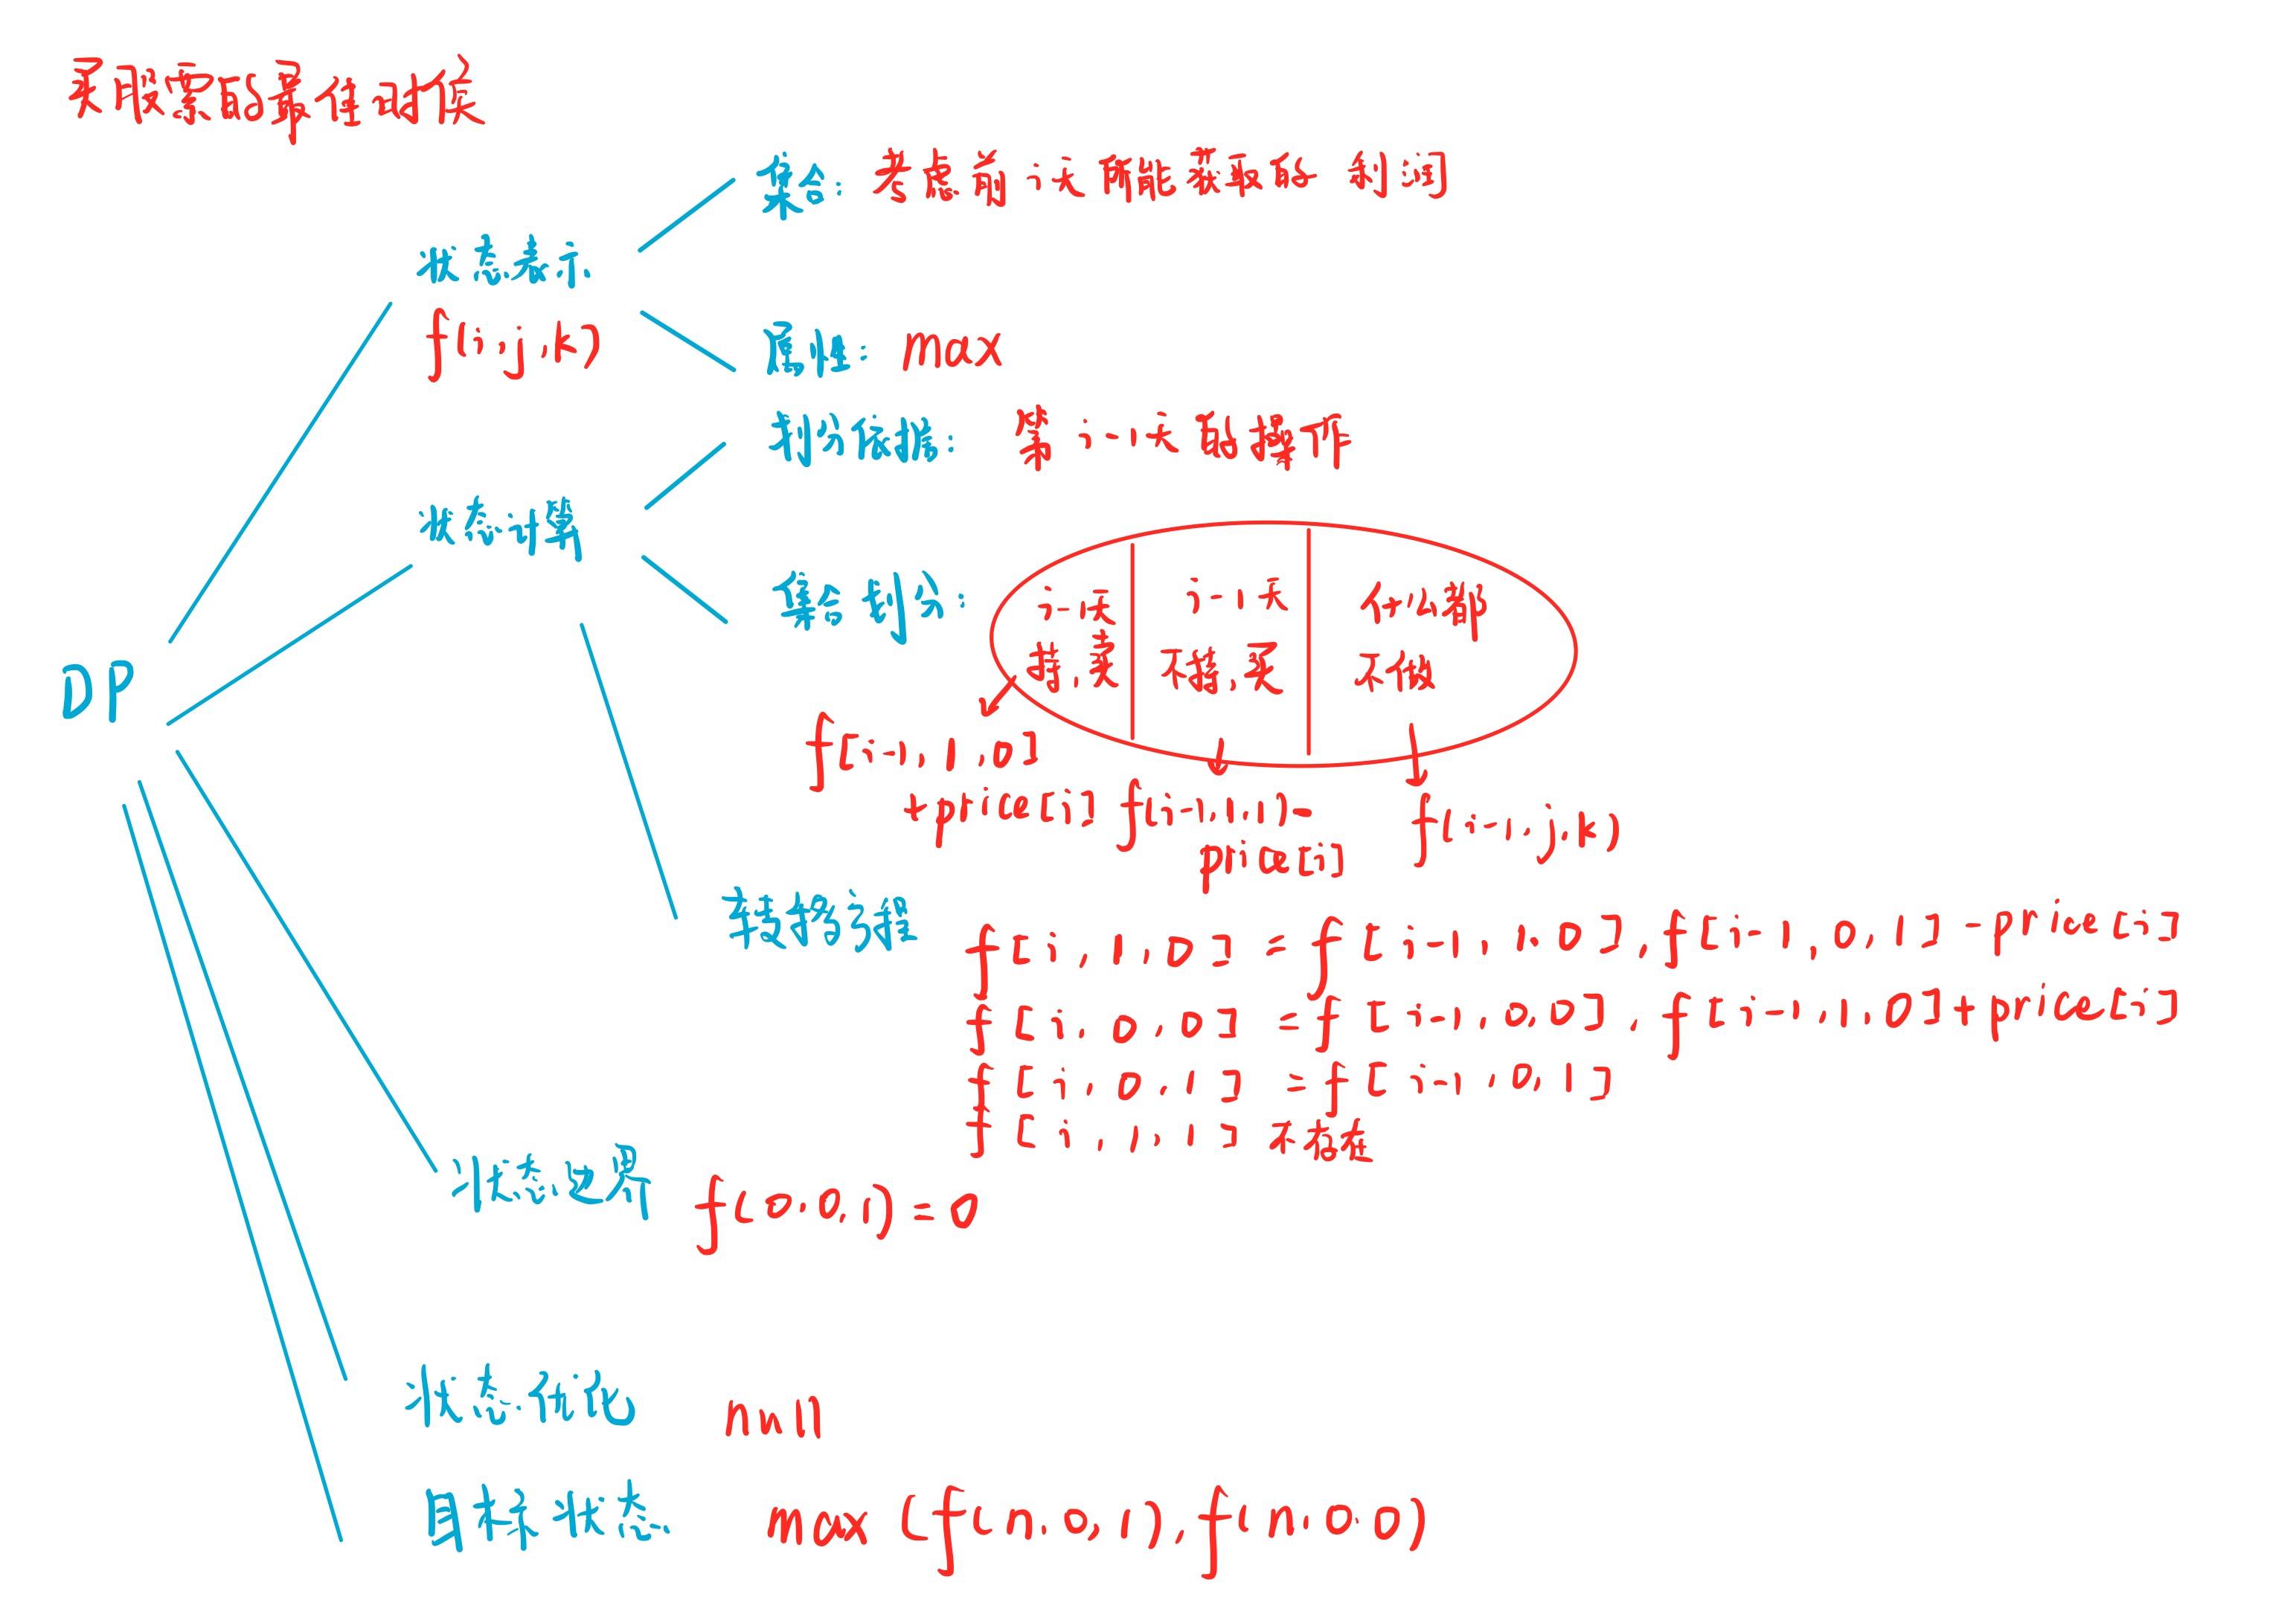 买股票的最佳时候
集合: 考虑前i天所能获取的 利润
状态表示
f(i,j,k)
属性: max
划分依据: 第i-1天的操作
状态计算
集合划分:
i-1天
持,卖
i-1天
不持,买
什么都
不做
DP
f[i-1,1,0]
+price[i]
f(i-1,1,1)-
price[i]
f(i-1,j,k)
转移方程
f[i,1,0]=f[i-1,1,0],f[i-1,0,1]-price[i]
f[i,0,0]=f[i-1,0,0],f[i-1,1,0]+price[i]
f[i,0,1]=f[i-1,0,1]
f[i,1,1]不存在
状态边界 f(0,0,1)=0
状态优化 null
目标状态 max(f(n,0,1),f(n,0,0)